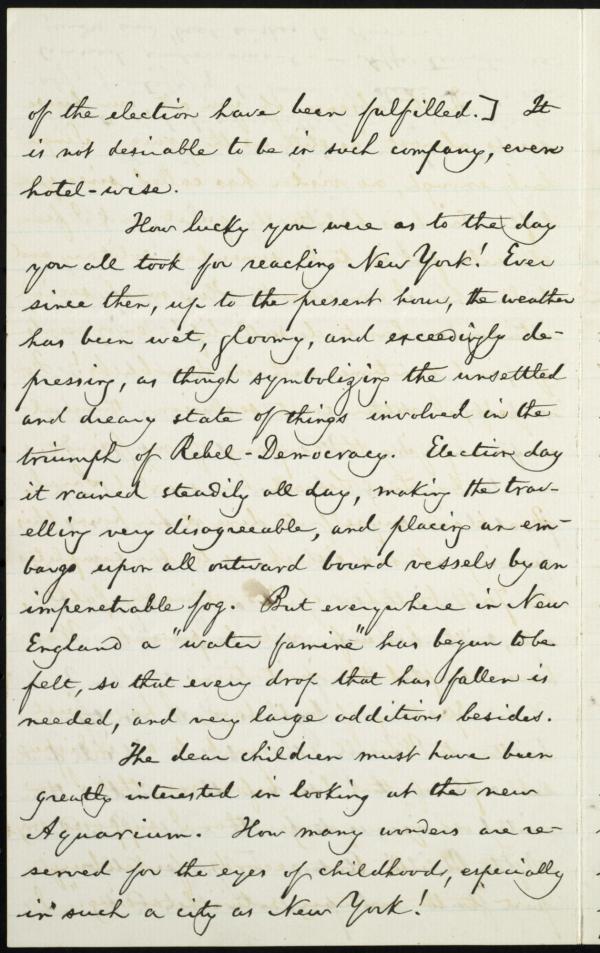 of the election have been fulfilled.] It
is not desirable to be in such company, even
hotel-wise.
How lucky you were as to the day
you all took for reaching New York! Ever
since then, up to the present hour, the weather
has been wet, gloomy, and exceedingly de-
pressing, as though symbolizing the unsettled
and dreary state of things involved in the
triumph of Rebel-Democracy. Election day
it rained steadily all day, making the trav-
elling very disagreeable, and placing an em-
bargo upon all outward bound vessels by an
impenetrable fog. But everywhere in New
England a "water famine" has begun to be
felt, so that every drop that has fallen is
needed, and very large additions besides.
The dear children must have been
greatly interested in looking at the new
Aquarium. How many wonders are re-
served for the eyes of childhood, especially
in such a city as New York!